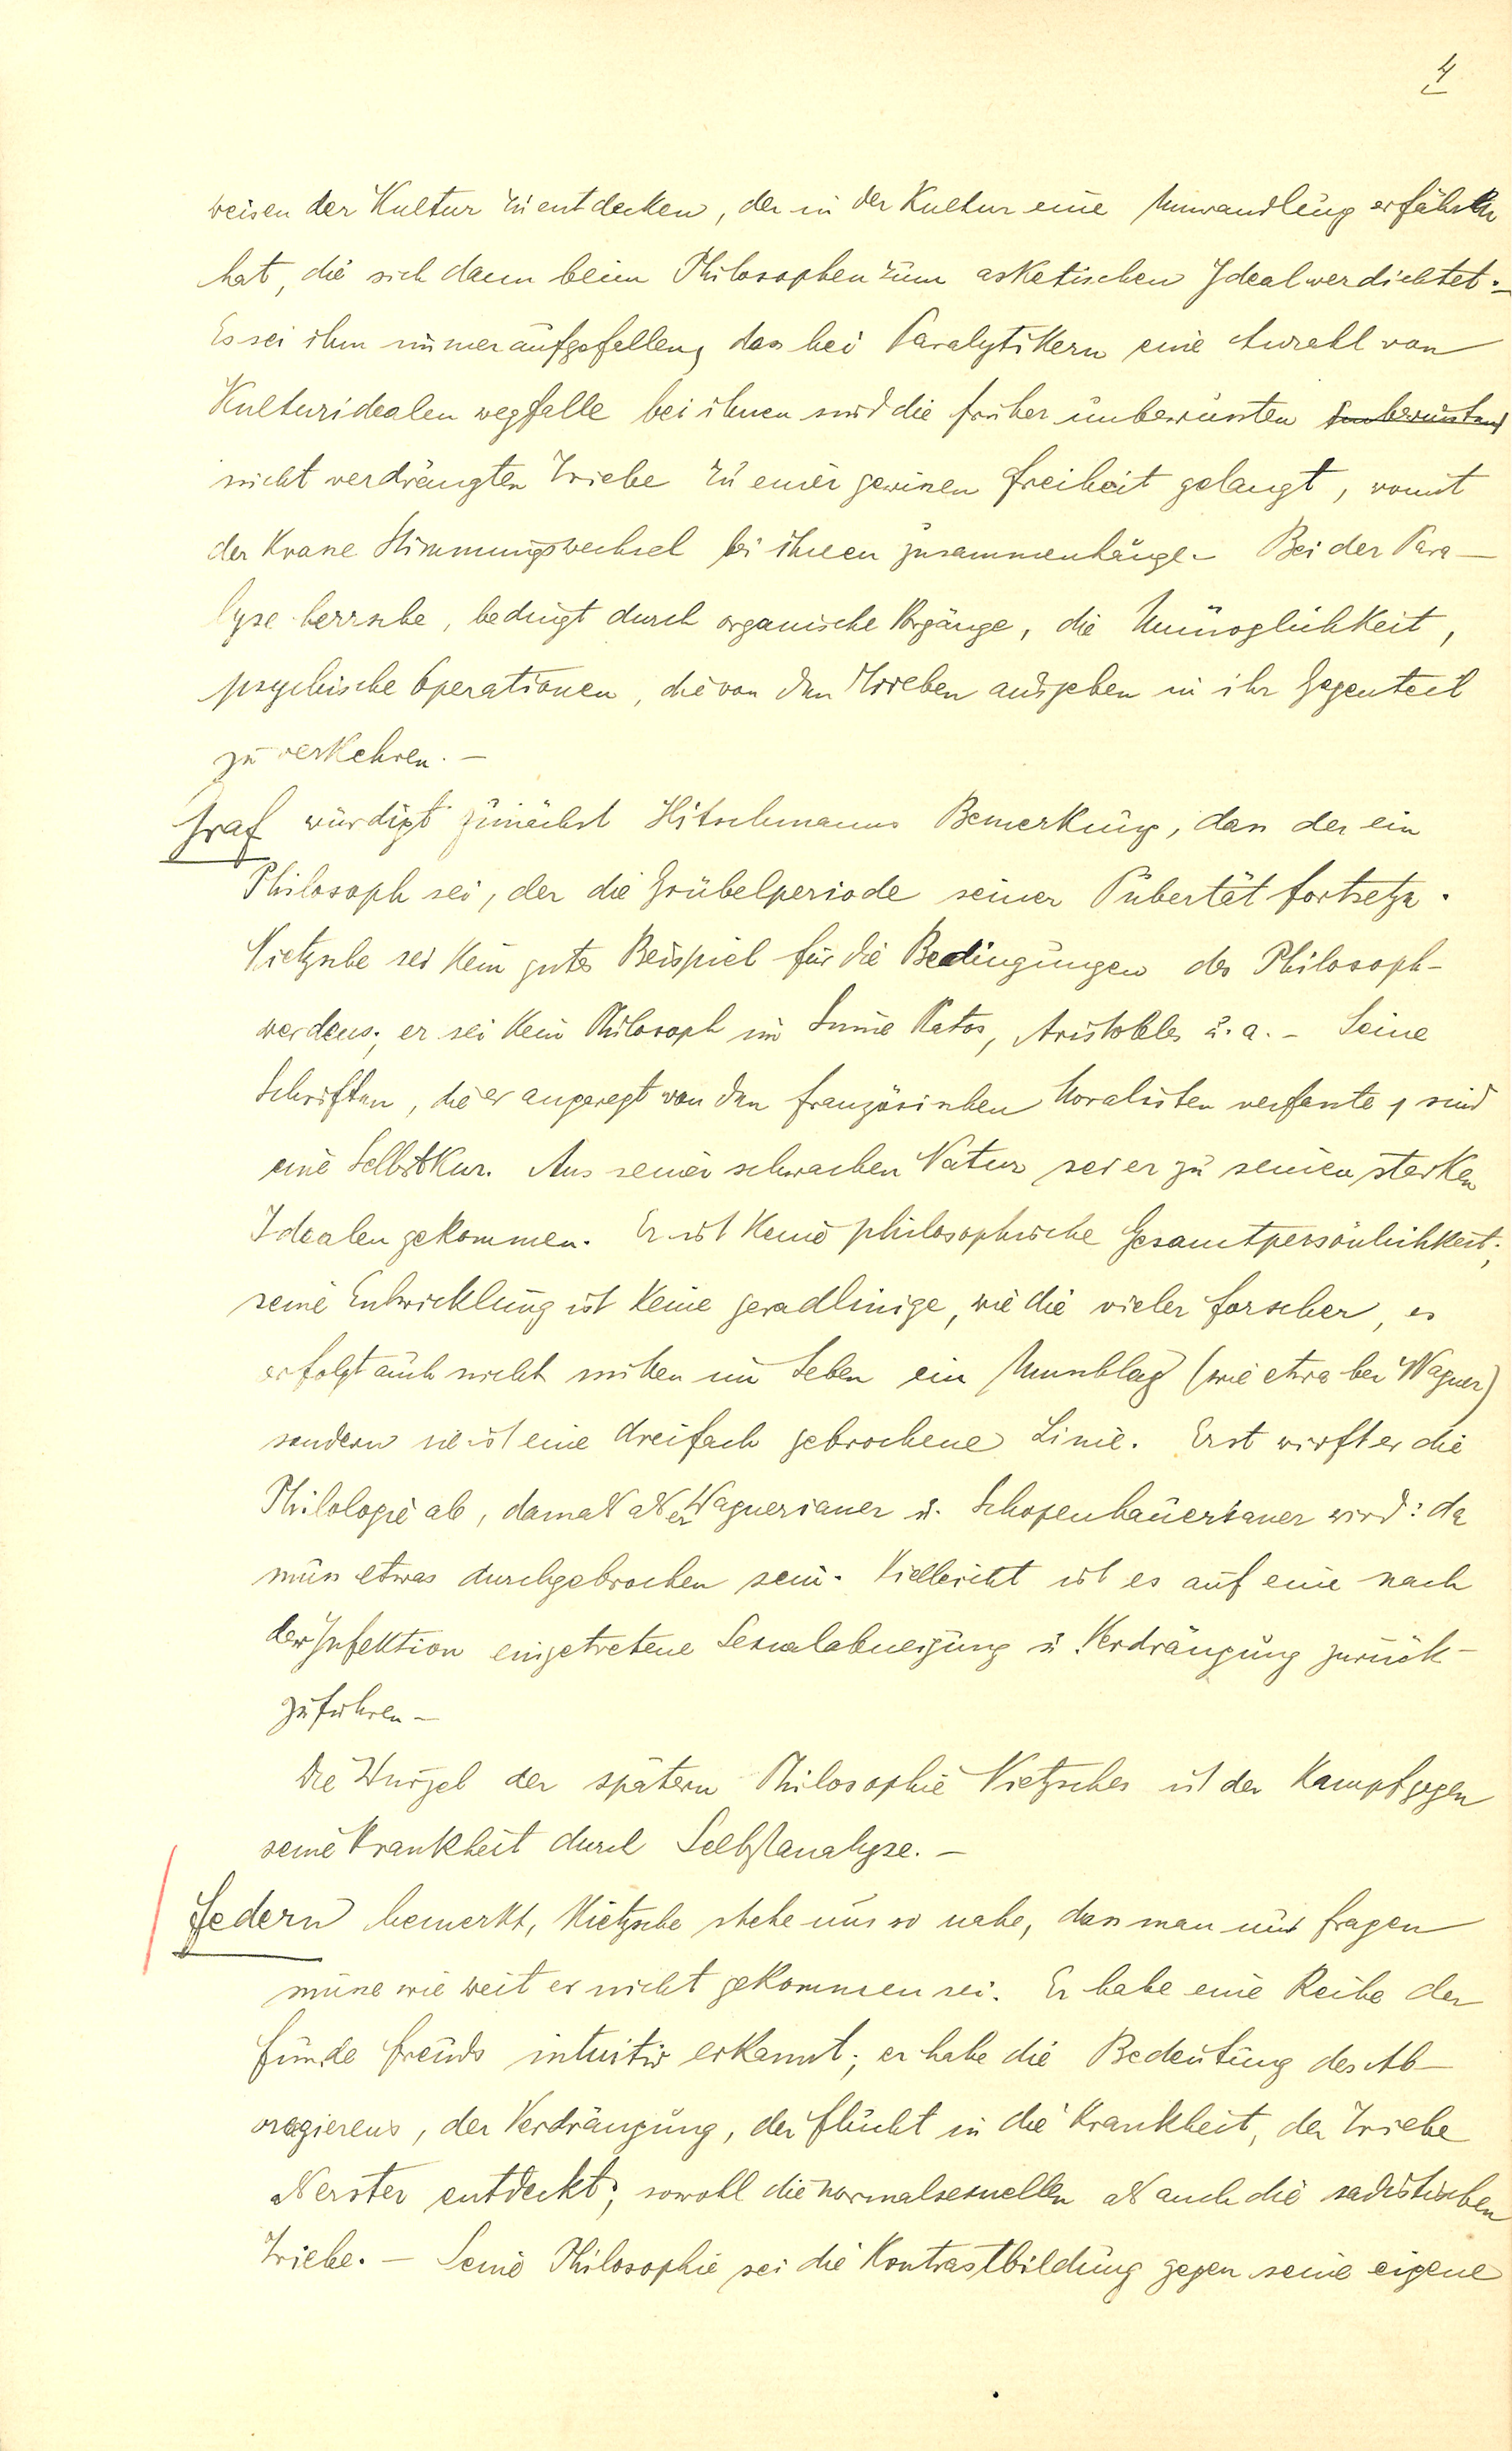 4
weisen der Kultur zu entdecken, der in der Kultur eine Umwandlung erfahren
hat, die sich dann beim Philosophen zum asketischen Ideal verdichtet. –
Es sei ihm immer aufgefallen, dass bei Paralytikern eine Anzahl von
Kulturidealen wegfalle bei ihnen sind die früher unbewussten unbewussten
nicht verdrängten Triebe zu einer gewissen Freiheit gelangt, womit
der krasse Stimmungswechsel bei ihnen zusammenhänge. – Bei der Para-
lyse herrsche, bedingt durch organische Vorgänge, die Unmöglichkeit,
psychische Operationen, die von den Trieben ausgehen in ihr Gegenteil
zu verkehren. –
Graf würdigt zunächst Hitschmanns Bemerkung, dass der ein
Philosoph sei, der die Grübelperiode seiner Pubertät fortsetze.
Nietzsche sei kein gutes Beispiel für die Bedingungen des Philosoph-
werdens; er sei kein Philosoph im Sinne Platos, Aristoteles u. a. – Seine
Schriften, die er angeregt von den französischen Moralisten verfasste, sind
eine Selbstkur. Aus seiner schwachen Natur sei er zu seinen starken
Idealen gekommen. Er ist keine philosophische Gesamtpersönlichkeit;
seine Entwicklung ist keine geradlinige, wie die vieler Forscher, es
erfolgt auch nicht mitten im Leben ein Umschlag (wie etwa bei Wagner)
sondern sie ist eine dreifach gebrochene Linie. Erst wirft er die
Philologie ab, damals als er Wagnerianer u. Schopenhauerianer wird: da
muss etwas durchgebrochen sein. Vielleicht ist es auf eine nach
der Infektion eingetretene Sexualabneigung u. Verdrängung zurück-
zuführen –
Die Wurzel der spätern Philosophie Nietzsches ist der Kampf gegen
seine Krankheit durch Selbstanalyse. –
Federn bemerkt, Nietzsche stehe uns so nahe, dass man nur fragen
müsse wie weit er nicht gekommen sei. Er habe eine Reihe der
Funde Freuds intuitiv erkannt; er habe die Bedeutung des Ab-
reagierens, der Verdrängung, der Flucht in die Krankheit, der Triebe
als erster entdeckt; sowohl die normalsexuellen als auch die sadistischen
Triebe. – Seine Philosophie sei die Kontrastbildung gegen seine eigene